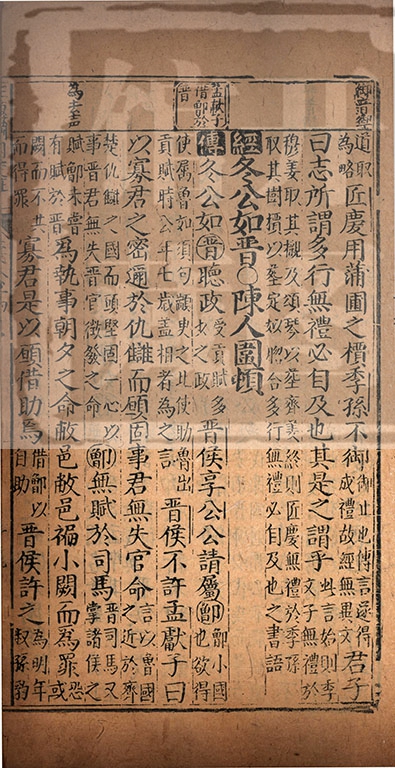 御音禦
道取
為略
匠慶用蒲圃之檟季孫不御
御止也傳言遂得
成禮故經無異文
君子
曰志所謂多行無禮必自及也其是之謂乎
此言始則季
文子無禮於
穆姜取其櫬及頌琴以葬齊姜終則匠慶無禮於季孫
取其樹檟以葬定姒 多行無禮必自及也之書語
孟獻子
借鄫於
晉
經冬公如晉○陳人圍頓
傳冬公如晉聽政
受貢賦多
少之政
晉侯享公公請屬鄫
鄫小國
也欲得
使屬魯如須句顓臾之比使助魯出
貢賦時公年七歲蓋相者為之言
晉侯不許孟獻子曰
以寡君之密邇於仇讎而願固事君無失官命
言以魯國
之近於齊
楚仇讎之國而願堅固一心以
事晉君無失晉官徵發之命
鄫無賦於司馬
晉司馬又
掌諸侯之
為去
賦鄫未嘗
有賦於晉
為執事朝夕之命敝邑敝邑褊小闕而為罪
恐
或
闕而不共
而得罪
寡君是以願借助焉
借鄫以
自助
晉侯許之
為明年
叔孫豹